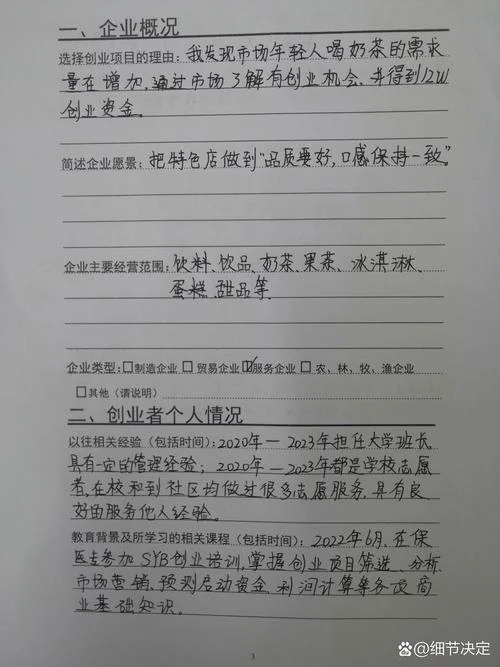 一、企业概况
选择创业项目的理由：我发现市场年轻人喝奶茶的需求
量在增加，通过市场了解有创业机会，并得到12W
创业资金。
简述企业愿景：把特色店做到“品质要好，口感保持一致”。
企业主要经营范围：饮料、饮品、奶茶、果茶、冰淇淋、
蛋糕、甜品等
企业类型：□制造企业 □ 贸易企业 ☑服务企业 □ 农、林、牧、渔企业
□其他（请说明）
二、创业者个人情况
以往相关经验（包括时间）：2020年—2023年担任大学班长
具有一定的管理经验；2020年—2023年都是学校志愿
者，在校和到社区均做过很多志愿服务，具有良
好的服务他人经验。
教育背景及所学习的相关课程（包括时间）：2022年6月，在保
医专参加SYB创业培训，掌握创业项目筛选、分析、
市场营销、预测启动资金、利润计算等各项商
业基础知识。
3
@细节决定